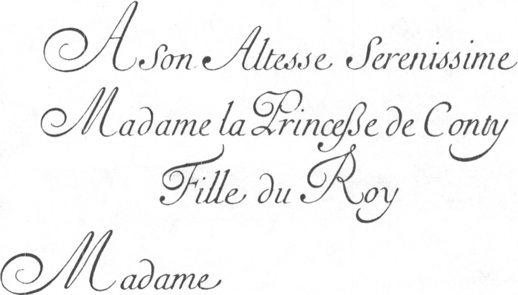 A Son Altesse Serenissime
Madame la Princeſse de Conty
Fille du Roy
Madame